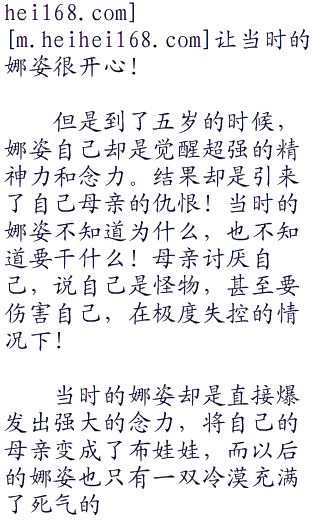 hei168.com]
[m.heihei168.com]让当时的
娜姿很开心！
但是到了五岁的时候，
娜姿自己却是觉醒超强的精
神力和念力。结果却是引来
了自己母亲的仇恨！当时的
娜姿不知道为什么，也不知
道要干什么！母亲讨厌自
己，说自己是怪物，甚至要
伤害自己，在极度失控的情
况下！
当时的娜姿却是直接爆
发出强大的念力，将自己的
母亲变成了布娃娃，而以后
的娜姿也只有一双冷漠充满
了死气的